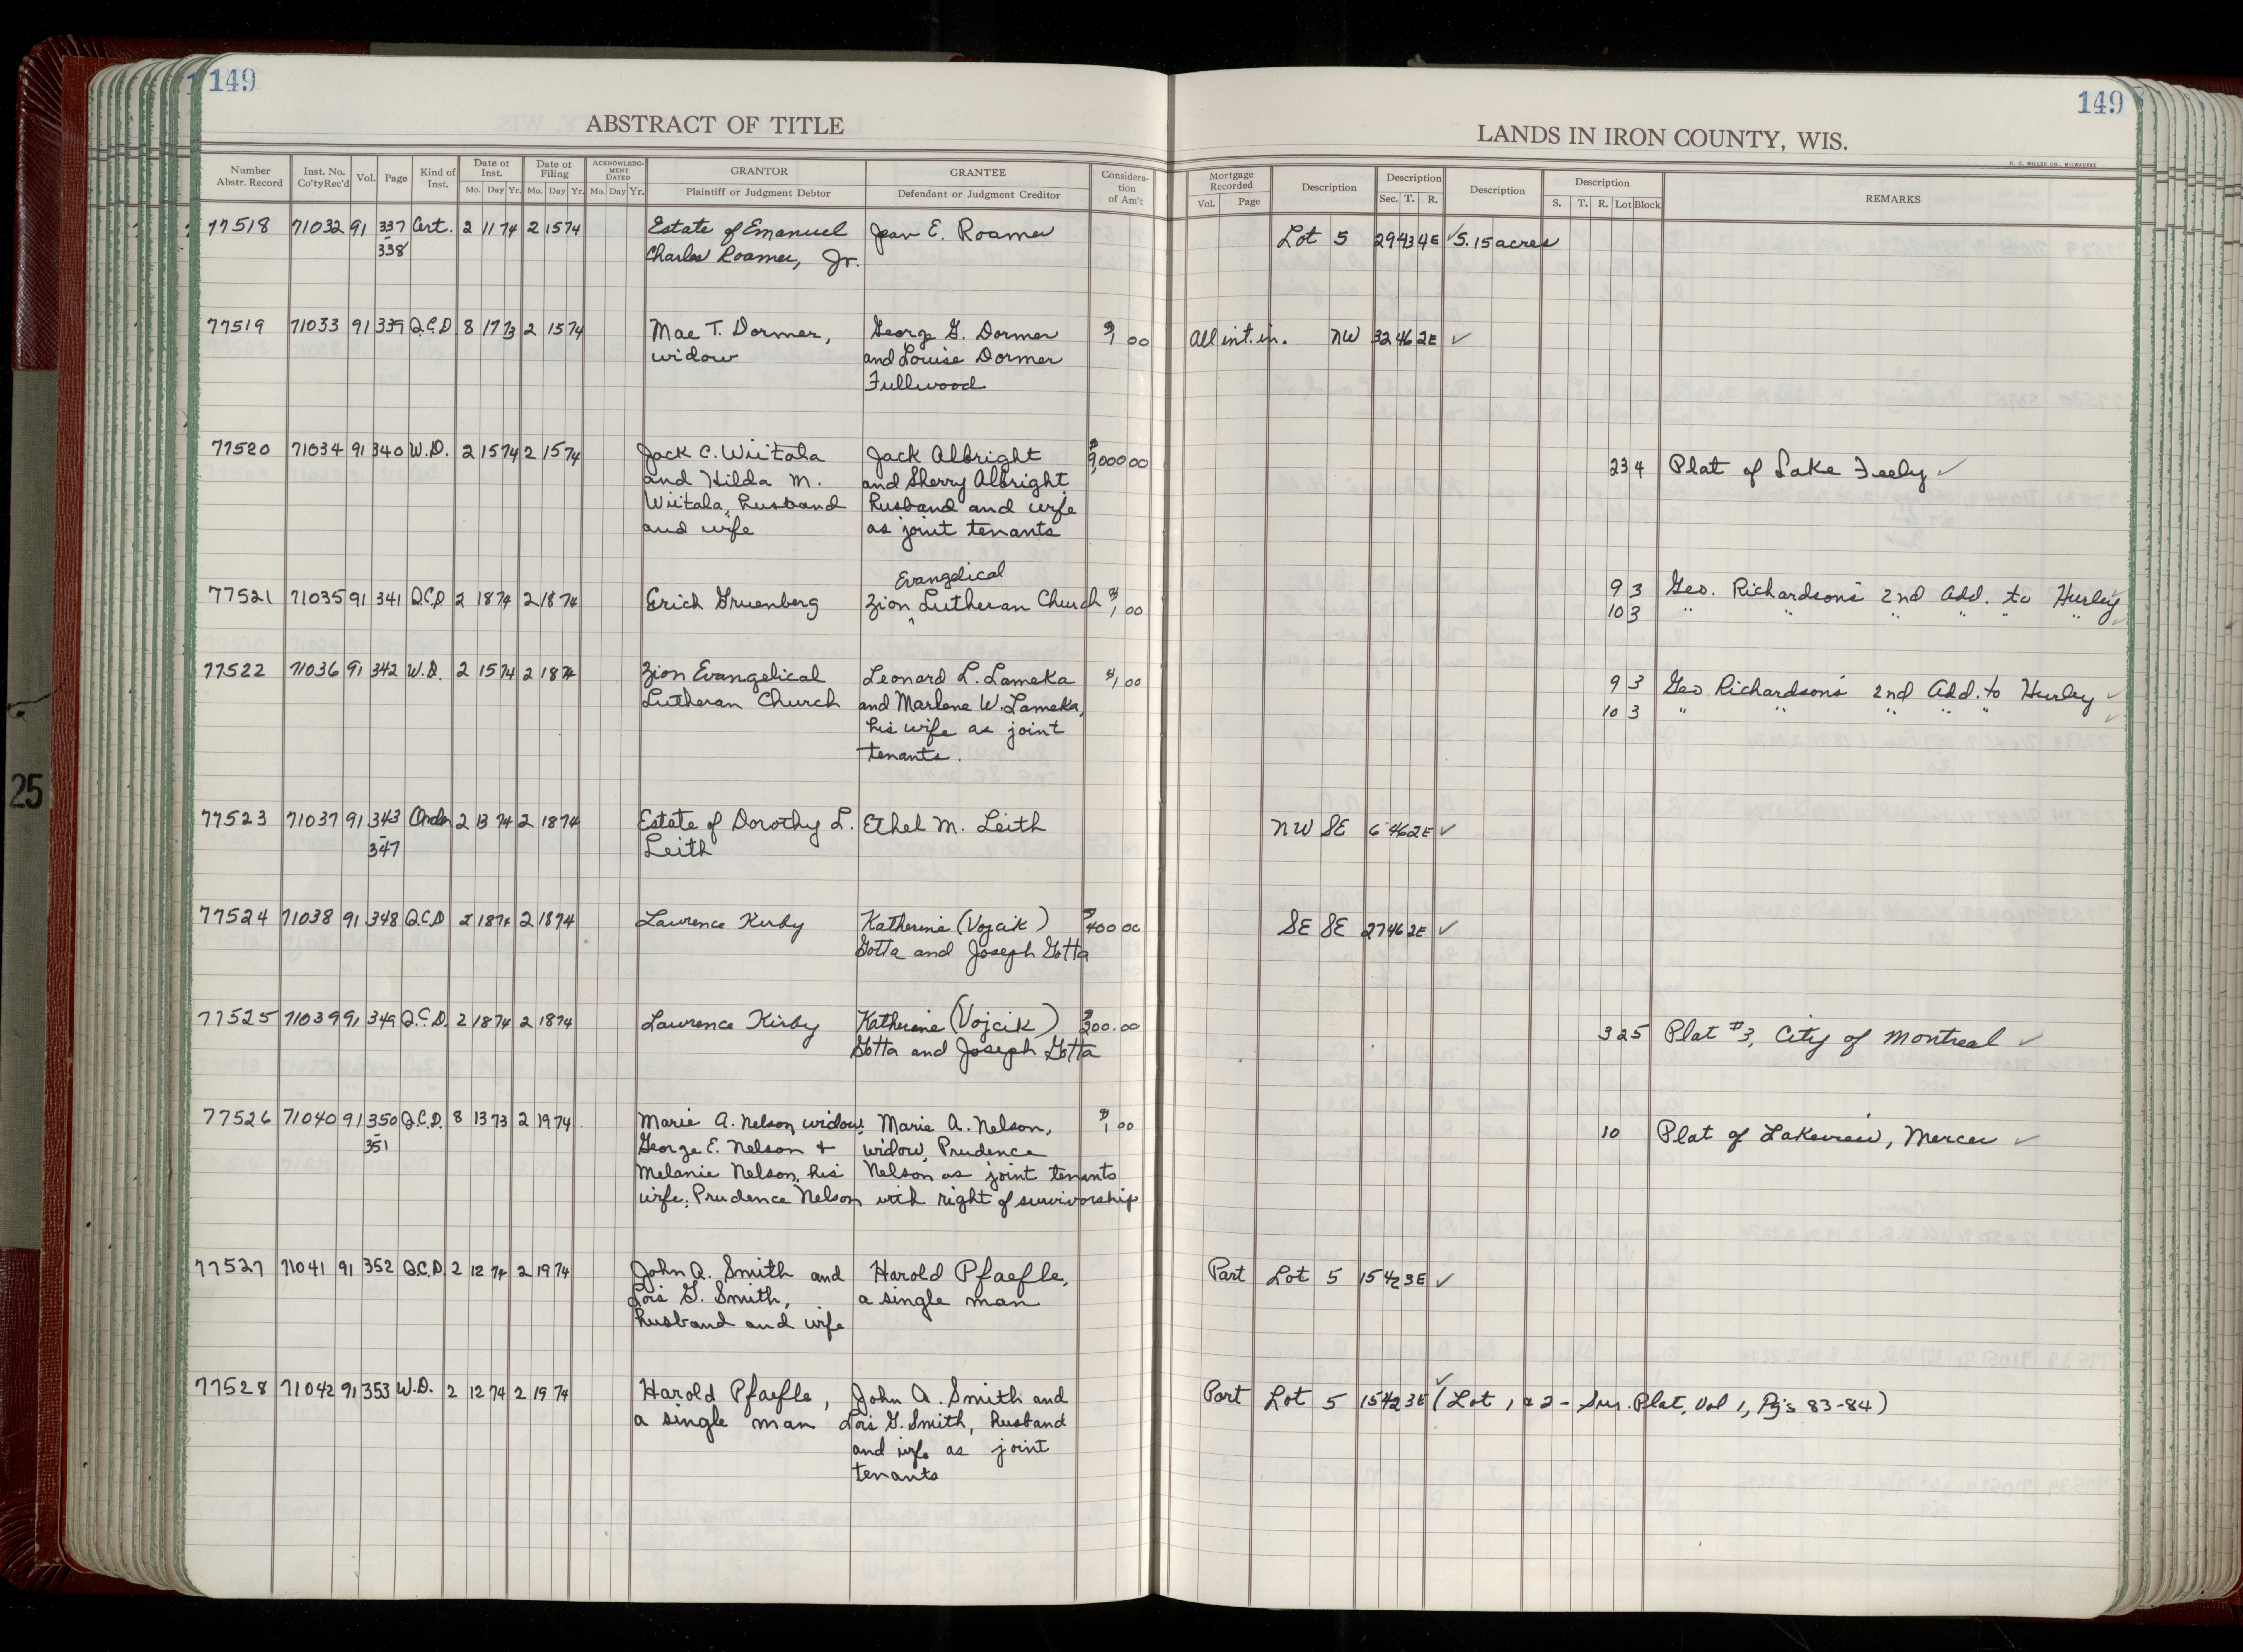 149
149
ABSTRACT OF TITLE
LANDS IN IRON COUNTY, WIS.
H. C. MILLER CO., MILWAUKEE
Number Abstr. Record Inst. No. Co'tyRec'd Vol. Page Kind of Inst. Date of Inst. Mo. Day Yr. Date of Filing Mo. Day Yr. ACKNOWLEDGMENT DATED Mo. Day Yr. GRANTOR Plaintiff or Judgment Debtor GRANTEE Defendant or Judgment Creditor Consideration of Am't Mortgage Recorded Vol. Page Description Description Sec. T. R. Description Description S. T. R. Lot Block REMARKS
77518 71032 91 337 Cert. 2 11 74 2 15 74 Estate of Emanuel Jean E. Roamer Lot 5 29 43 4E ✓ S. 15 acres
- 338 Charles Roamer, Jr.
77519 71033 91 339 Q.C.D 8 17 73 2 15 74 Mae T. Dormer, George G. Dormer $1 00 All int. in. NW 32 46 2E ✓
widow and Louise Dormer
Fullwood
77520 71034 91 340 W.D. 2 15 74 2 15 74 Jack C. Wiitala Jack Albright $9,000 00 23 4 Plat of Lake Feely ✓
and Hilda M. and Sherry Albright
Wiitala, husband husband and wife
and wife as joint tenants
Evangelical
77521 71035 91 341 Q.C.D. 2 18 74 2 18 74 Erich Gruenberg Zion ^ Lutheran Church $1, 00 9 3 Geo. Richardson's 2nd Add. to Hurley ✓
10 3 " " " " " " ✓
77522 71036 91 342 W.D. 2 15 74 2 18 74 Zion Evangelical Leonard L. Lameka $1, 00 9 3 Geo Richardson's 2nd Add. to Hurley ✓
Lutheran Church and Marlene W. Lameka, 10 3 " " " " " ✓
his wife as joint
tenants.
77523 71037 91 343 Order 2 13 74 2 18 74 Estate of Dorothy L. Ethel M. Leith NW SE 6 46 2E ✓
- 347 Leith
77524 71038 91 348 Q.C.D 2 18 74 2 18 74 Lawrence Kirby Katherine (Vojcik) $400 00 SE SE 27 46 2E ✓
Gotta and Joseph Gotta
77525 71039 91 349 Q.C.D. 2 18 74 2 18 74 Lawrence Kirby Katherine (Vojcik) $200.00 3 25 Plat #3, City of Montreal ✓
Gotta and Joseph Gotta
77526 71040 91 350 Q.C.D. 8 13 73 2 19 74 Marie A. Nelson, widow; Marie A. Nelson, $1 00 10 Plat of Lakeview, Mercer ✓
- 351 George E. Nelson + widow, Prudence
Melanie Nelson, his Nelson as joint tenants
wife; Prudence Nelson with right of survivorship
77527 71041 91 352 Q.C.D 2 12 74 2 19 74 John A. Smith and Harold Pfaefle, Part Lot 5 15 42 3E ✓
Lois G. Smith, a single man
husband and wife
77528 71042 91 353 W.D. 2 12 74 2 19 74 Harold Pfaefle, John A. Smith and Part Lot 5 15 42 3E ✓ (Lot 1 & 2 - Sur. Plat, Vol 1, Pg's 83-84)
a single man Lois G. Smith, husband
and wife as joint
tenants
25